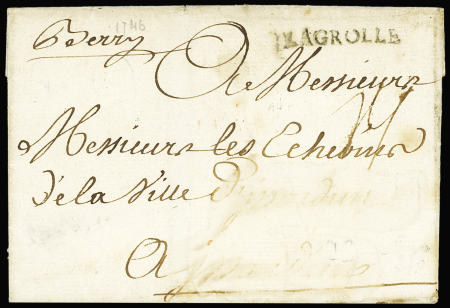 1746
Berry
LAGROLLE
A Messieurs
Messieurs les Echevins
de la Ville D'yssoudun
A